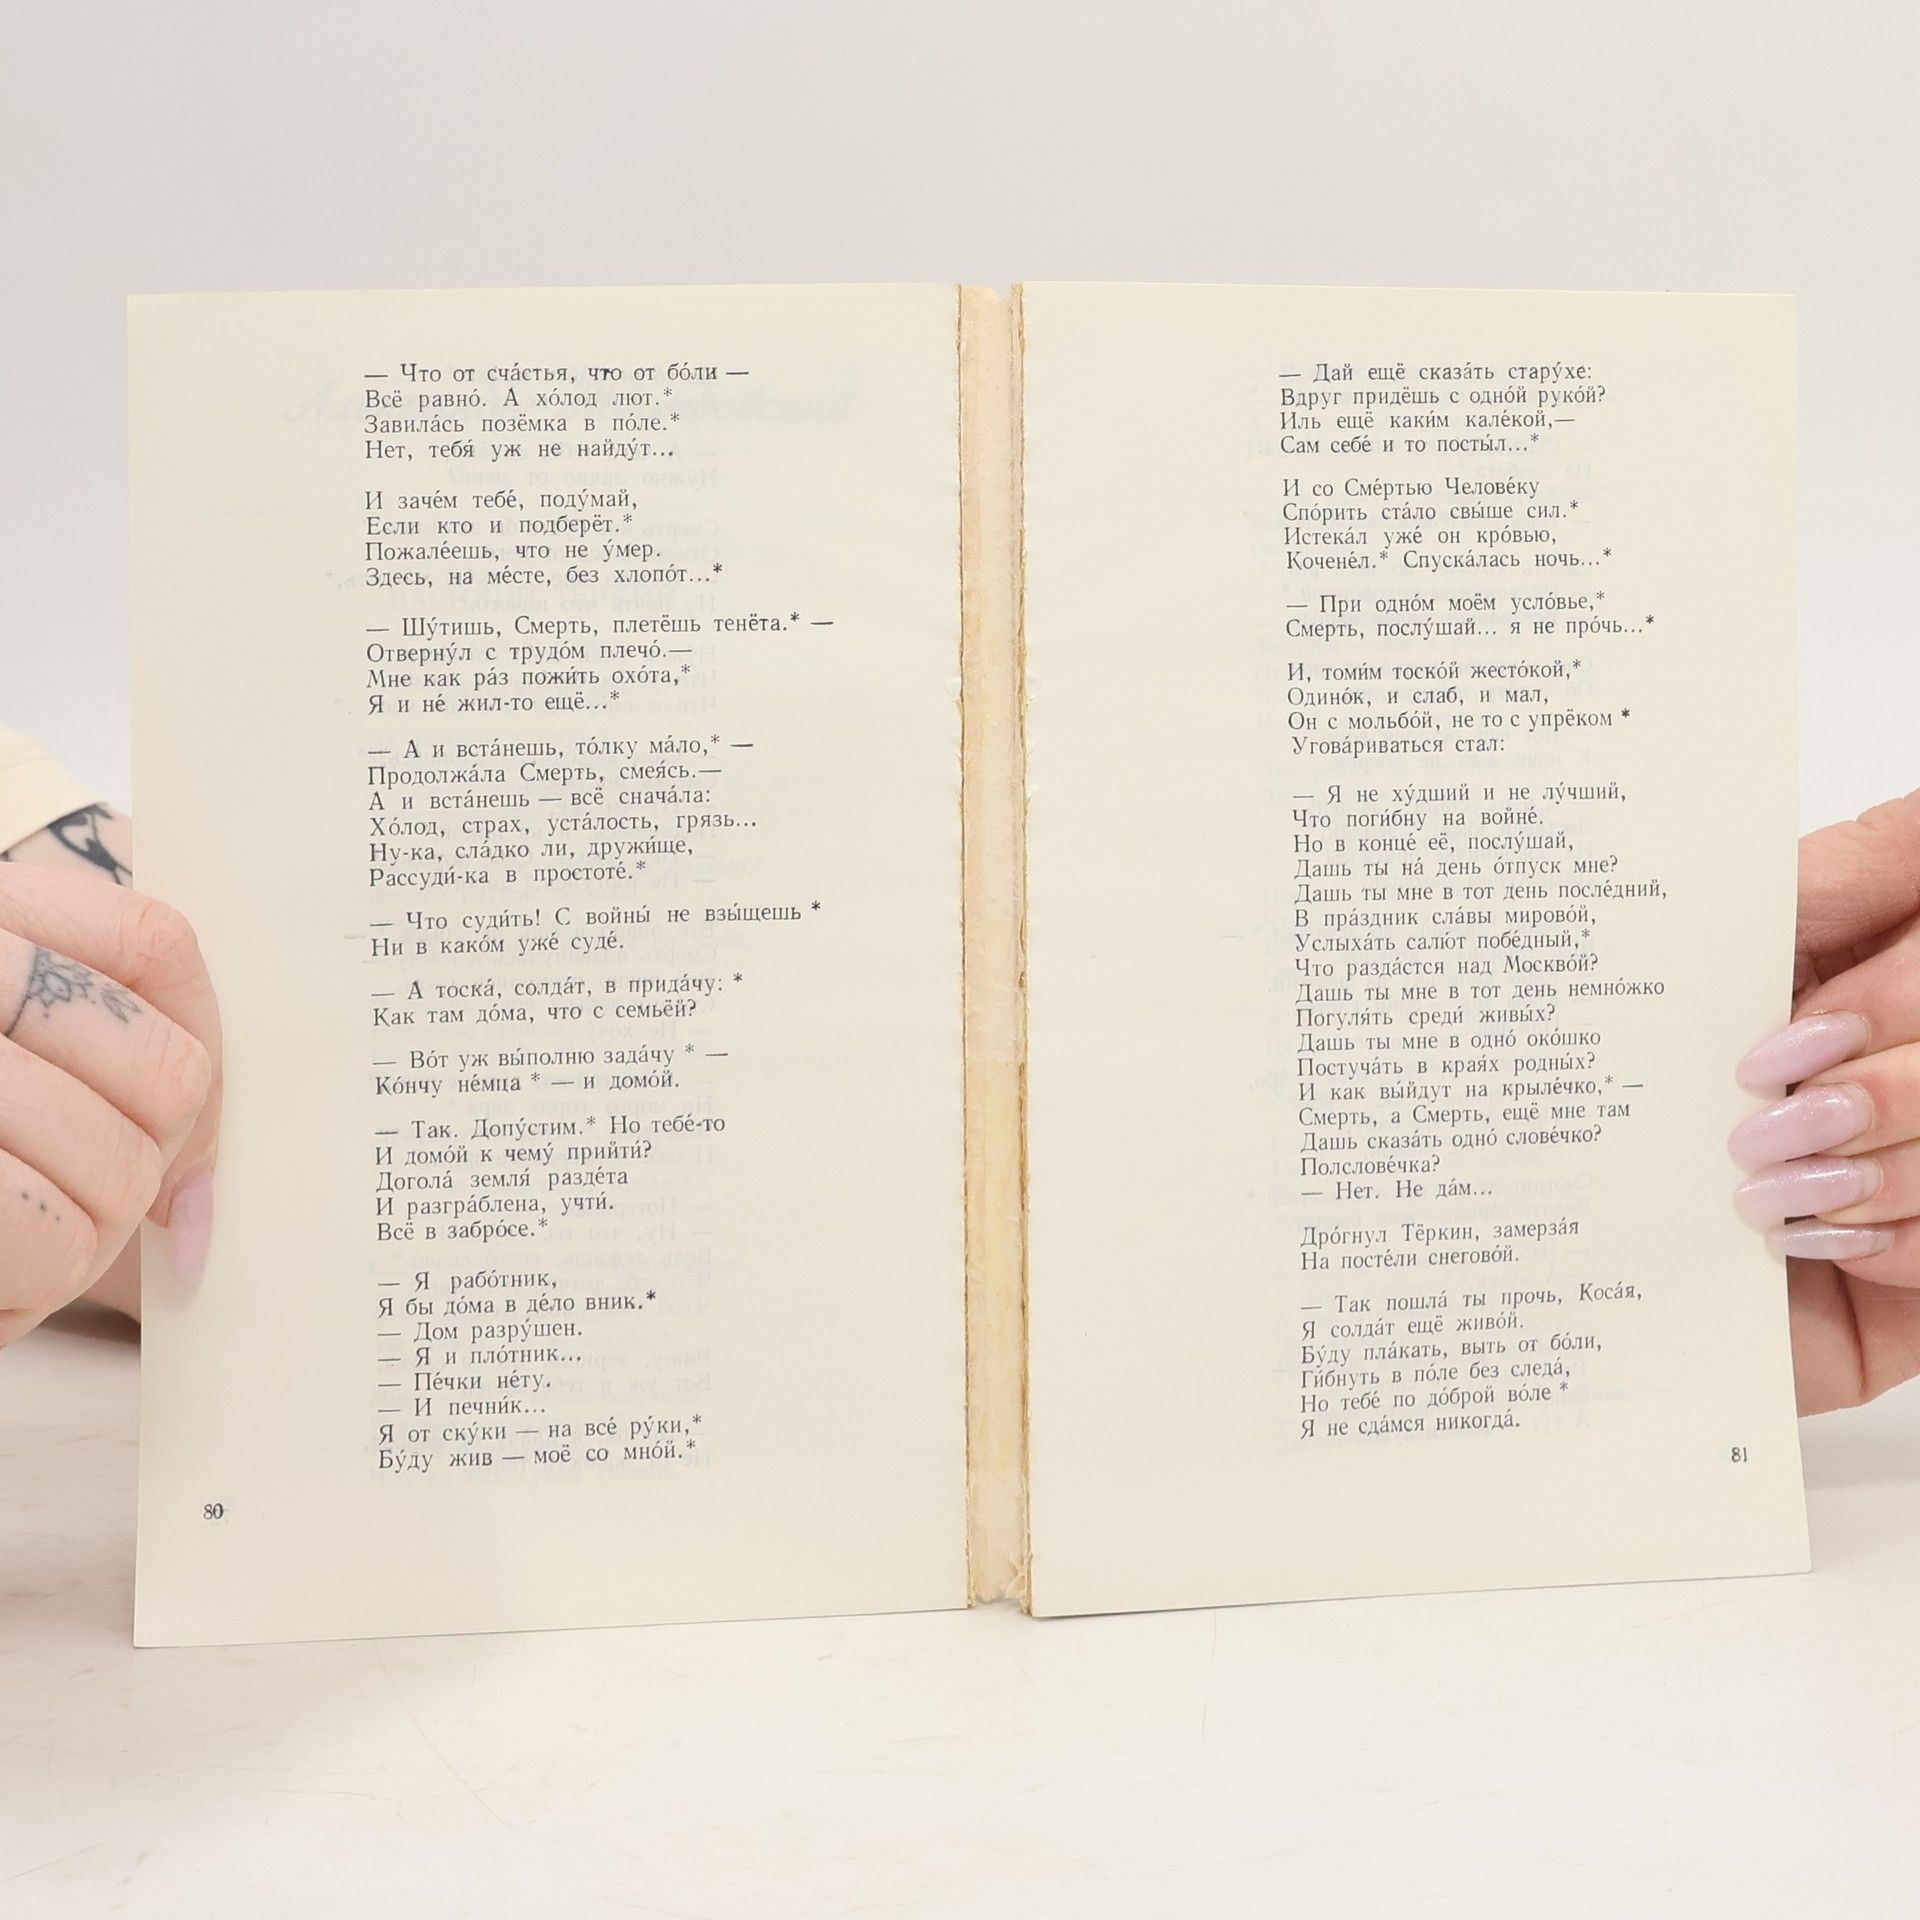 — Что от сча́стья, что от бо́ли —
Всё равно́. А хо́лод лют.*
Завила́сь позёмка в по́ле.*
Нет, тебя́ уж не найду́т...
И заче́м тебе́, поду́май,
Если кто и подберёт.*
Пожале́ешь, что не у́мер.
Здесь, на ме́сте, без хлопо́т...*
— Шу́тишь, Смерть, плетёшь тенёта.* —
Отверну́л с трудо́м плечо́.—
Мне как ра́з пожи́ть охо́та,*
Я и не́ жил-то ещё...*
— А и вста́нешь, то́лку ма́ло,* —
Продолжа́ла Смерть, смея́сь.—
А и вста́нешь — всё снача́ла:
Хо́лод, страх, уста́лость, грязь...
Ну-ка, сла́дко ли, дружи́ще,
Рассуди́-ка в простоте́.*
— Что суди́ть! С войны́ не взы́щешь *
Ни в како́м уже́ суде́.
— А тоска́, солда́т, в прида́чу: *
Как там до́ма, что с семьёй?
— Во́т уж вы́полню зада́чу * —
Ко́нчу не́мца * — и домо́й.
— Так. Допу́стим.* Но тебе́-то
И домо́й к чему́ прийти́?
Догола́ земля́ разде́та
И разгра́блена, учти́.
Всё в забро́се.*
— Я рабо́тник,
Я бы до́ма в де́ло вник.*
— Дом разру́шен.
— Я и пло́тник...
— Пе́чки не́ту.
— И печни́к...
Я от ску́ки — на все́ ру́ки,*
Бу́ду жив — моё со мно́й.*
80
— Дай ещё сказа́ть стару́хе:
Вдруг придёшь с одно́й руко́й?
Иль ещё каки́м кале́кой,—
Сам себе́ и то посты́л...*
И со Сме́ртью Челове́ку
Спо́рить ста́ло свы́ше сил.*
Истека́л уже́ он кро́вью,
Коченéл.* Спуска́лась ночь...*
— При одно́м моём усло́вье,*
Смерть, послу́шай... я не про́чь...*
И, томи́м тоско́й жесто́кой,*
Одино́к, и слаб, и мал,
Он с мольбо́й, не то с упрёком *
Угова́риваться стал:
— Я не ху́дший и не лу́чший,
Что поги́бну на войне́.
Но в конце́ её, послу́шай,
Дашь ты на́ день о́тпуск мне?
Дашь ты мне в тот день после́дний,
В пра́здник сла́вы мирово́й,
Услыха́ть салю́т побе́дный,*
Что разда́стся над Москво́й?
Дашь ты мне в тот день немно́жко
Погуля́ть среди́ живы́х?
Дашь ты мне в одно́ око́шко
Постуча́ть в края́х родны́х?
И как вы́йдут на крыле́чко,* —
Смерть, а Смерть, ещё мне там
Дашь сказа́ть одно́ слове́чко?
Полслове́чка?
— Нет. Не да́м...
Дро́гнул Тёркин, замерза́я
На посте́ли снегово́й.
— Так пошла́ ты прочь, Коса́я,
Я солда́т ещё живо́й.
Бу́ду пла́кать, выть от бо́ли,
Ги́бнуть в по́ле без следа́,
Но тебе́ по до́брой во́ле *
Я не сда́мся никогда́.
81